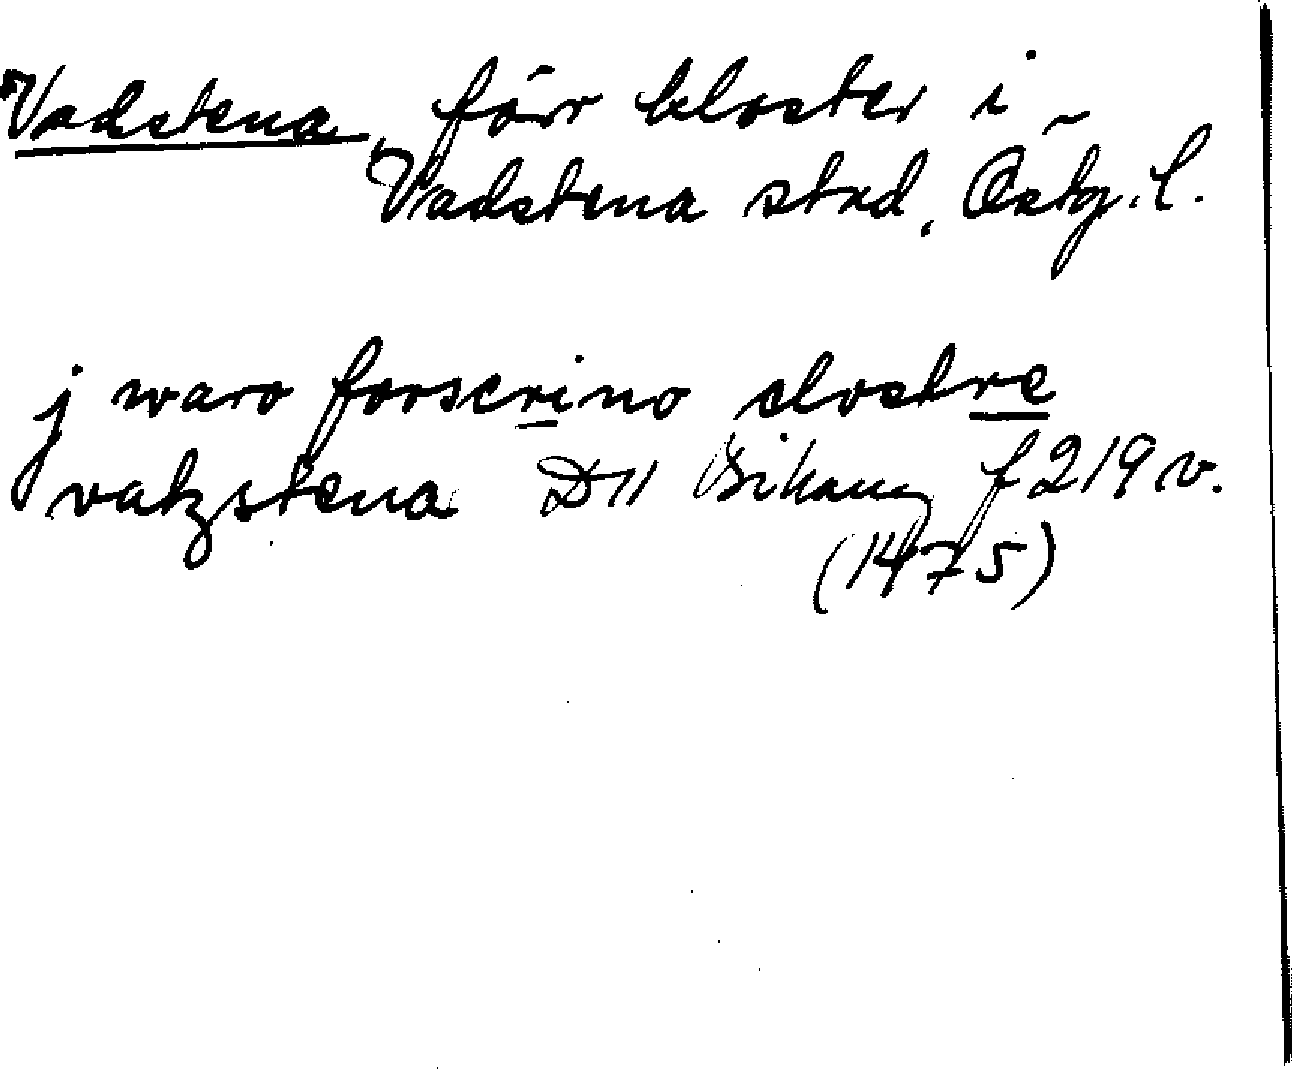 Vadstena, förr kloster i
Vadstena stad, Östg. l.
j waro forscrino clostre
vatzstena D 11 Bihang f 219 v.
(1475)